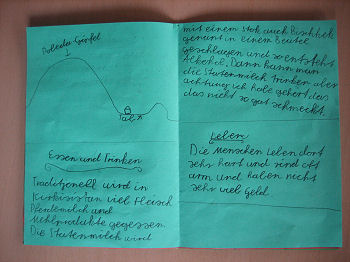 Pobeda Gipfel
Tal
Essen und Trinken
Traditionell wird in
Kirkisistan viel Fleisch
Pferdemilch und
Mehlprodukte gegessen.
Die Stutenmilch wird
mit einem Stok auch Bischkek
genannt in einem Beutel
geschlagen und so entsteht
Alkohol. Dann kann man
die Stutenmilch Trinken aber
achtung ich habe gehört das
das nicht so gut schmeckt.
Leben
Die Menschen Leben dort
sehr hart und sind oft
arm und haben nicht
sehr viel Geld.